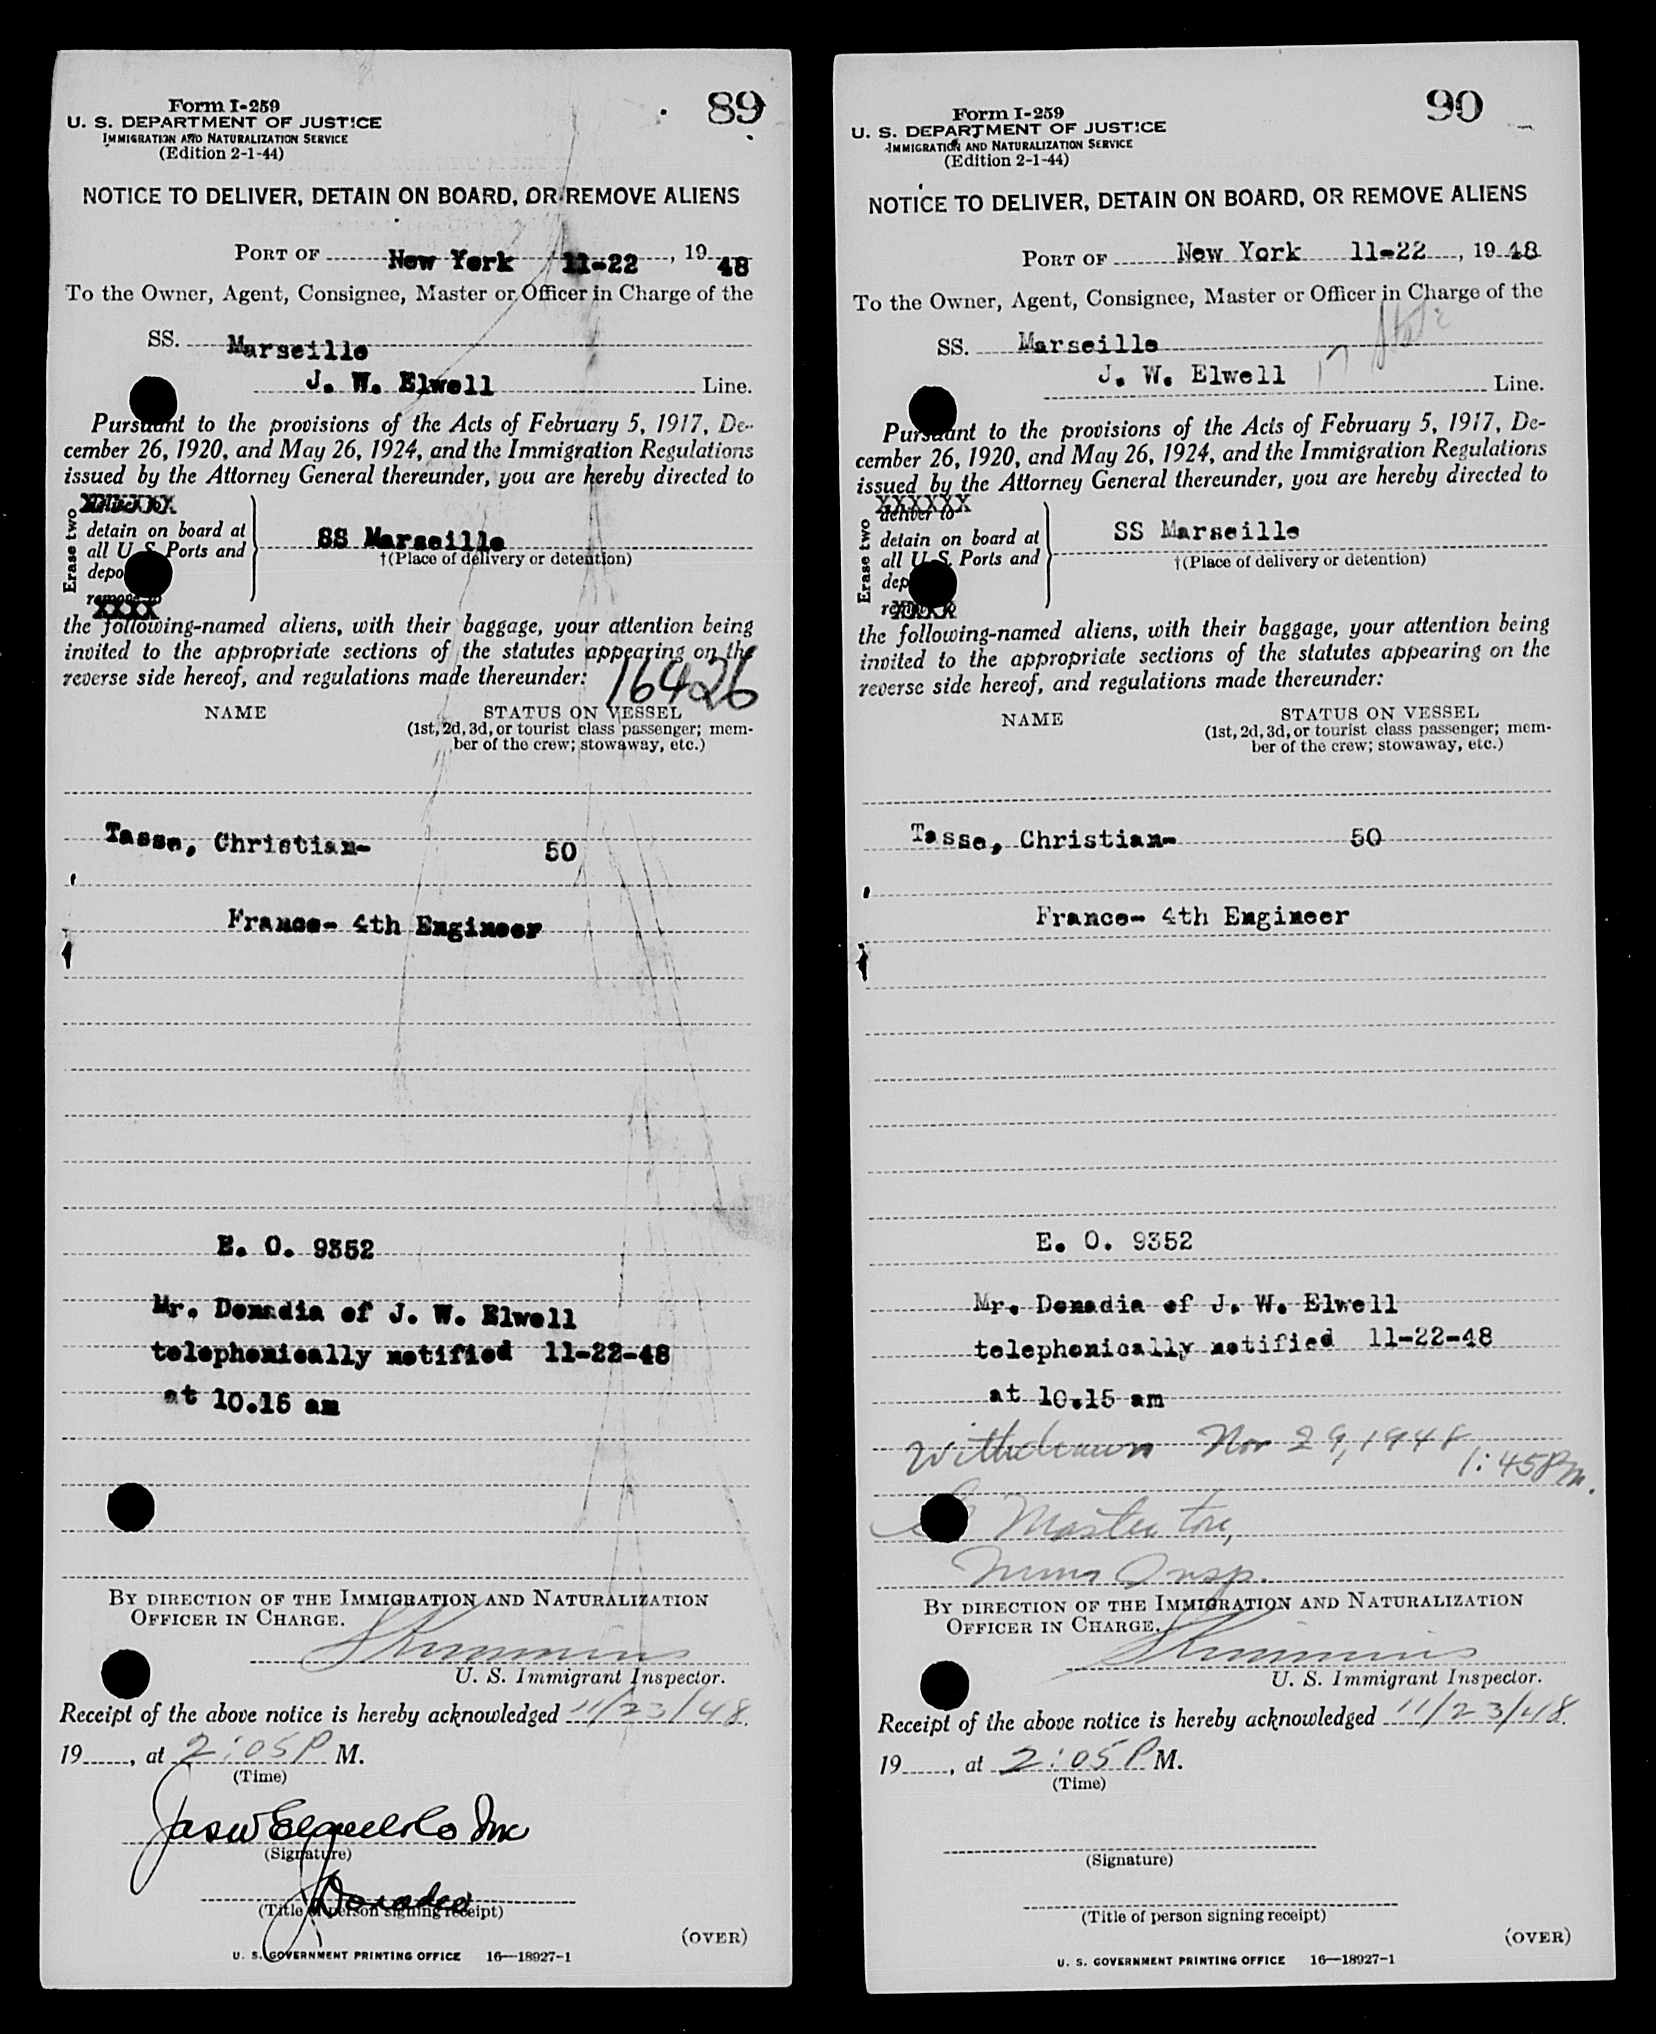 Form I-259
U. S. DEPARTMENT OF JUSTICE
IMMIGRATION AND NATURALIZATION SERVICE
(Edition 2-1-44)
89
NOTICE TO DELIVER, DETAIN ON BOARD, OR REMOVE ALIENS
PORT OF New York 11-22, 19 48
To the Owner, Agent, Consignee, Master or Officer in Charge of the
SS. Marseille
J. W. Elwell Line.
Pursuant to the provisions of the Acts of February 5, 1917, De-
cember 26, 1920, and May 26, 1924, and the Immigration Regulations
issued by the Attorney General thereunder, you are hereby directed to
Erase two
XXXXXX
detain on board at
all U. S. Ports and
depo
remove to
XXXX
SS Marseille
†(Place of delivery or detention)
the following-named aliens, with their baggage, your attention being
invited to the appropriate sections of the statutes appearing on the
reverse side hereof, and regulations made thereunder:
16426
NAME
STATUS ON VESSEL
(1st, 2d, 3d, or tourist class passenger; mem-
ber of the crew; stowaway, etc.)
Tasse, Christian- 50
France- 4th Engineer
E. O. 9352
Mr. Donadia of J. W. Elwell
telephonically notified 11-22-48
at 10.15 am
BY DIRECTION OF THE IMMIGRATION AND NATURALIZATION
OFFICER IN CHARGE.
U. S. Immigrant Inspector.
Receipt of the above notice is hereby acknowledged 11/23/48.
19, at 2:05 P M.
(Time)
Jas W Elwell & Co Inc
(Signature)
(Title of person signing receipt)
(OVER)
U. S. GOVERNMENT PRINTING OFFICE 16—18927-1
Form I-259
U. S. DEPARTMENT OF JUSTICE
IMMIGRATION AND NATURALIZATION SERVICE
(Edition 2-1-44)
90
NOTICE TO DELIVER, DETAIN ON BOARD, OR REMOVE ALIENS
PORT OF New York 11-22, 19 48
To the Owner, Agent, Consignee, Master or Officer in Charge of the
SS. Marseille
J. W. Elwell 17 Line.
Pursuant to the provisions of the Acts of February 5, 1917, De-
cember 26, 1920, and May 26, 1924, and the Immigration Regulations
issued by the Attorney General thereunder, you are hereby directed to
Erase two
XXXXXX
deliver to
detain on board at
all U. S. Ports and
dep
remove to
XXXX
SS Marseille
†(Place of delivery or detention)
the following-named aliens, with their baggage, your attention being
invited to the appropriate sections of the statutes appearing on the
reverse side hereof, and regulations made thereunder:
NAME
STATUS ON VESSEL
(1st, 2d, 3d, or tourist class passenger; mem-
ber of the crew; stowaway, etc.)
Tasse, Christian- 50
France- 4th Engineer
E. O. 9352
Mr. Donadia of J. W. Elwell
telephonically notified 11-22-48
at 10.15 am
Withdrawn Nov 29, 1948
1:45 Pm.
Imm Insp.
BY DIRECTION OF THE IMMIGRATION AND NATURALIZATION
OFFICER IN CHARGE.
U. S. Immigrant Inspector.
Receipt of the above notice is hereby acknowledged 11/23/48.
19, at 2:05 P M.
(Time)
(Signature)
(Title of person signing receipt)
(OVER)
U. S. GOVERNMENT PRINTING OFFICE 16—18927-1